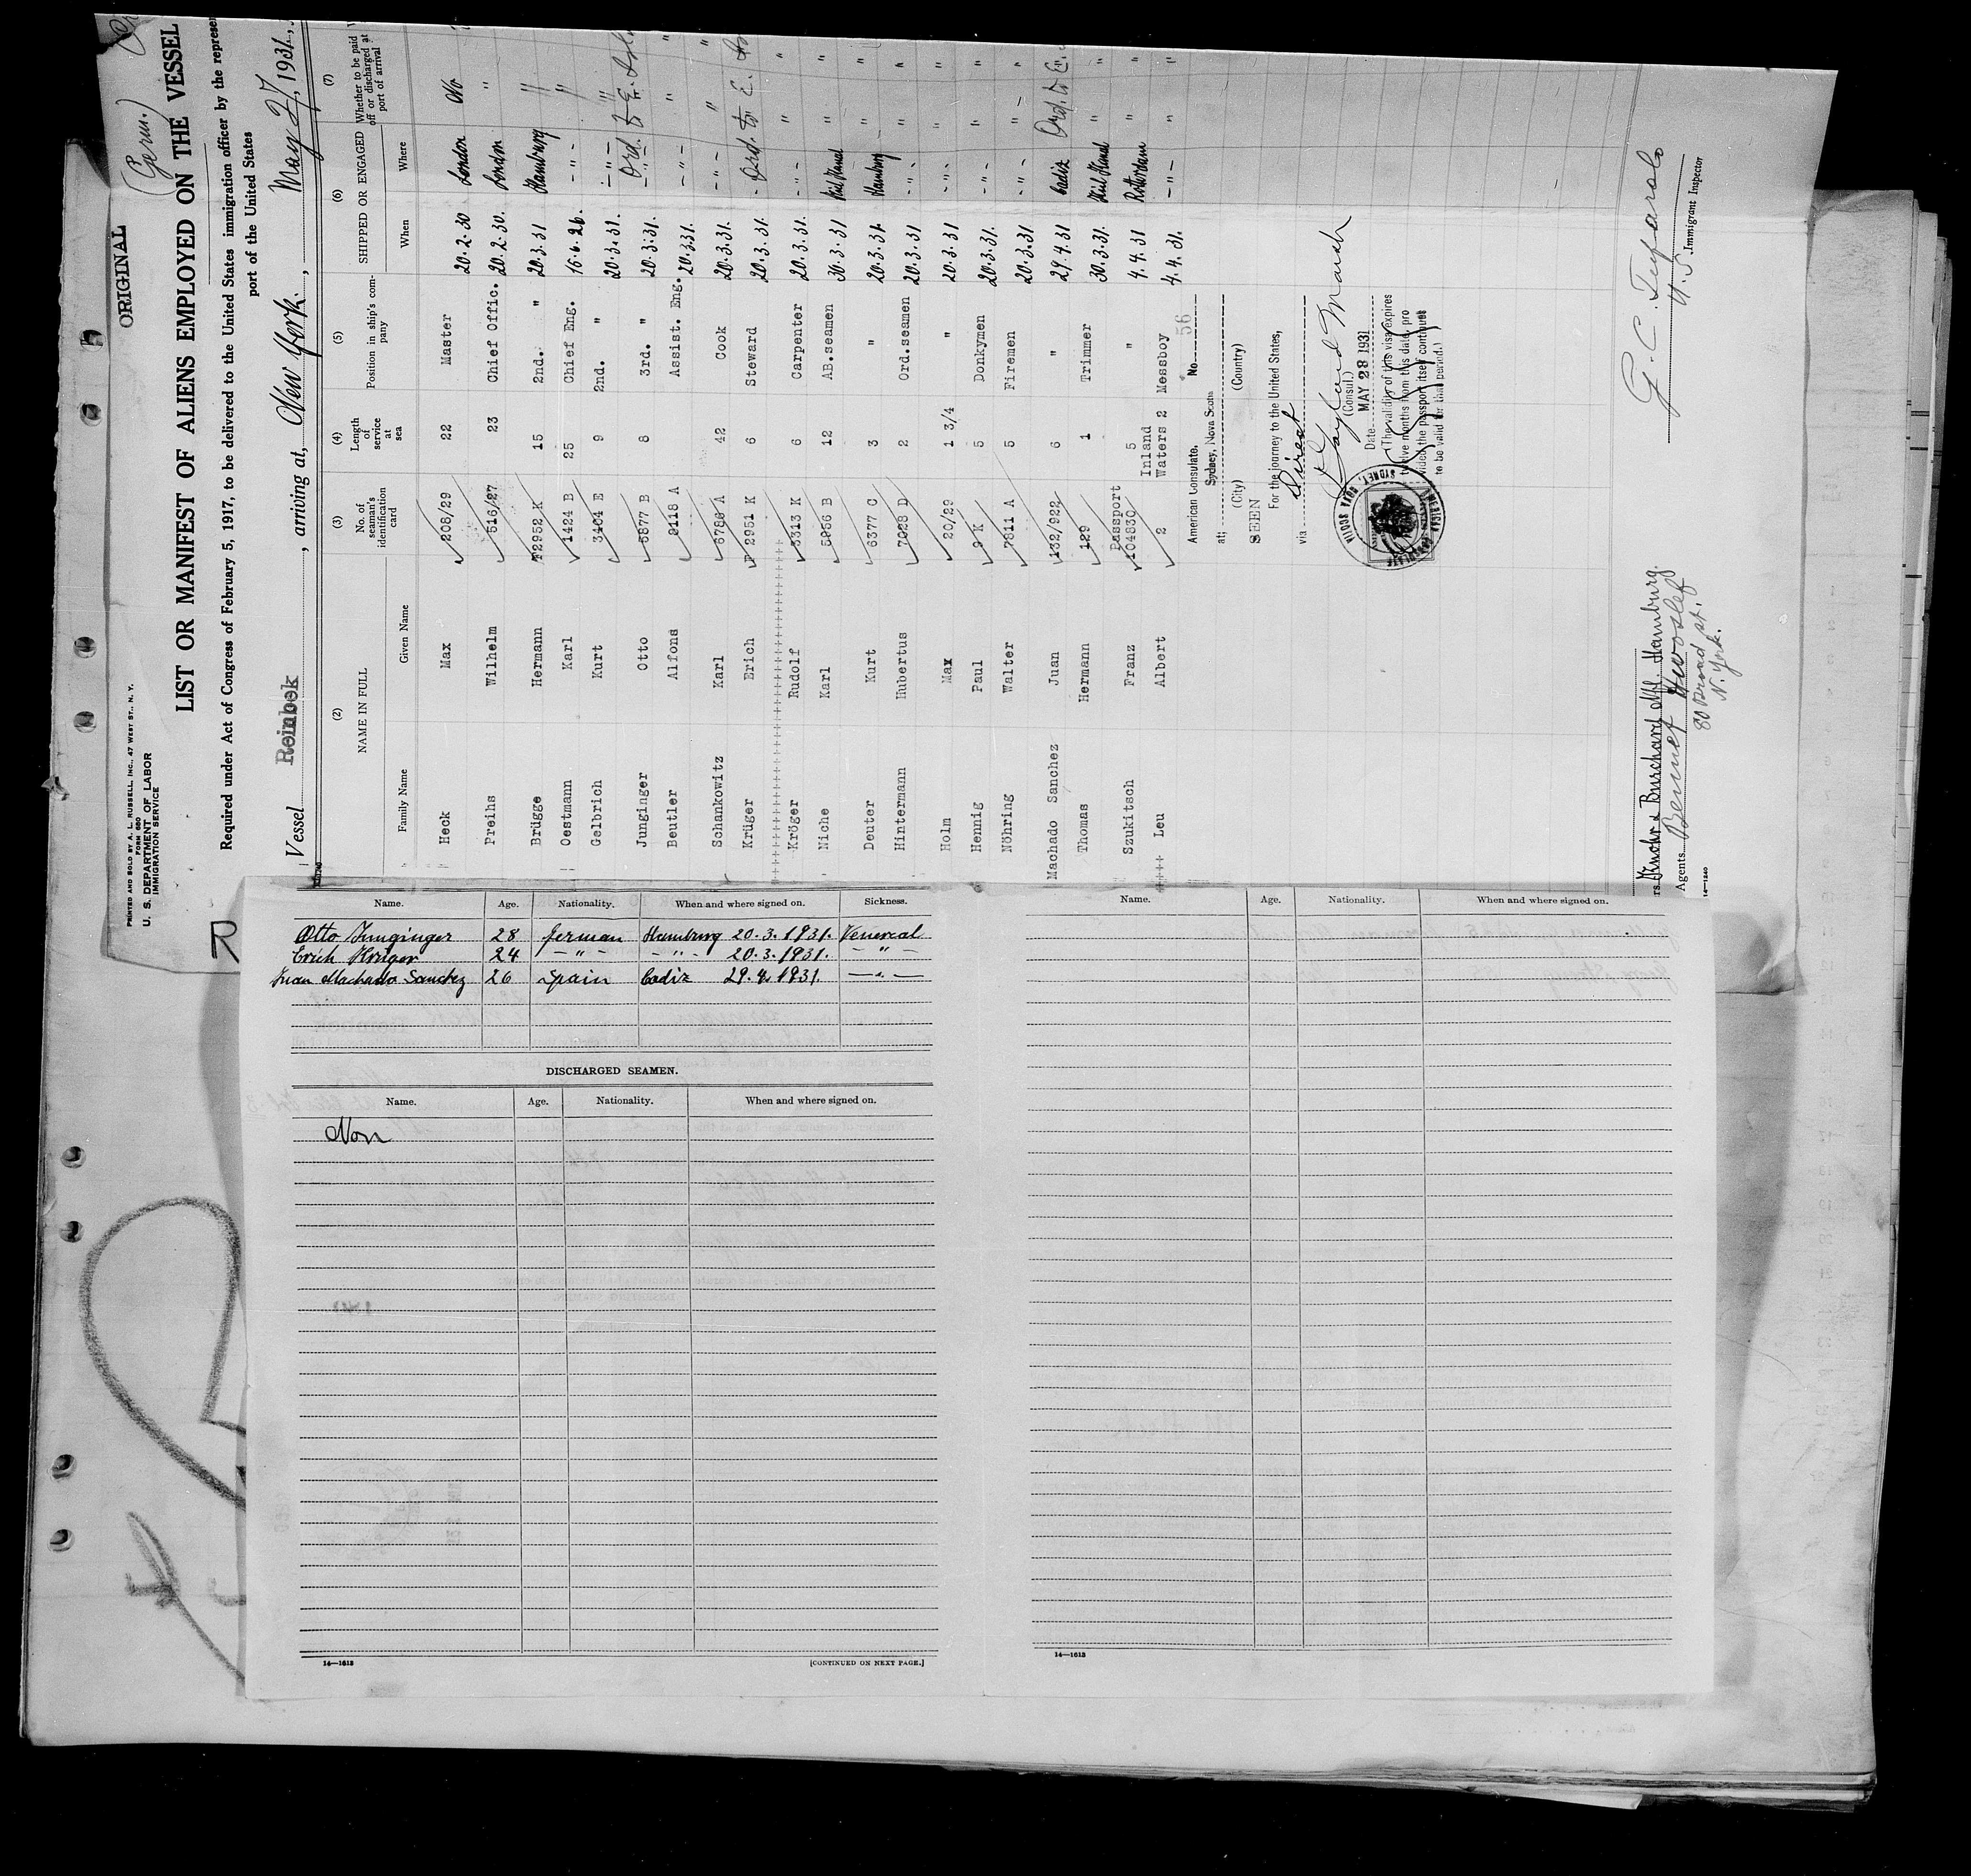 ORIGINAL
(Germ.)
PRINTED AND SOLD BY A. L. RUSSELL, INC., 47 WEST ST., N. Y.
FORM 680
U. S. DEPARTMENT OF LABOR
IMMIGRATION SERVICE
LIST OR MANIFEST OF ALIENS EMPLOYED ON THE VESSEL
Required under Act of Congress of February 5, 1917, to be delivered to the United States immigration officer by the represen
port of the United States
Vessel Reinbek, arriving at, New York., May 27, 1931.,
(2) (3) (4) (5) (6) (7)
NAME IN FULL
Family Name Given Name
No. of seaman's identification card
Length of service at sea
Position in ship's company
SHIPPED OR ENGAGED
When Where
Whether to be paid off or discharged at port of arrival
Heck Max 208/29 22 Master 20.2.30 London No
Preihs Wilhelm 516/27 23 Chief Offic. 20.2.30. London "
Brügge Hermann F2952 K 15 2nd. " 20.3.31 Hamburg "
Oestmann Karl 1424 B 25 Chief Eng. 16.6.26. -"- "
Gelbrich Kurt 3404 E 9 2nd. " 20.3.31. -"- "
Junginger Otto 5877 B 8 3rd. " 20.3.31. -"- Ord. to E.
Beutler Alfons 9118 A Assist. Eng. 20.3.31. -"- "
Schankowitz Karl 6786 A 42 Cook 20.3.31. -"- "
Krüger Erich F 2951 K 6 Steward 20.3.31. -"- Ord. to E.
Kröger Rudolf 3313 K 6 Carpenter 20.3.31. -"- "
Niche Karl 5956 B 12 AB.seamen 30.3.31 "
Deuter Kurt 6377 C 3 " 20.3.31. Hamburg "
Hintermann Hubertus 7028 D 2 Ord.seamen 20.3.31 -"- "
Holm Max 20/29 1 3/4 " 20.3.31 -"- "
Hennig Paul 9 K 5 Donkymen 20.3.31. -"- "
Nöhring Walter 7811 A 5 Firemen 20.3.31 -"- "
Machado Sanchez Juan 132/922 6 " 29.4.31 Cadiz Ord. to E.
Thomas Hermann 129 1 Trimmer 30.3.31. "
Szukitsch Franz Passport 104830 5 " 4.4.31 Rotterdam "
Leu Albert 2 Inland Waters 2 Messboy 4.4.31. -"- "
American Consulate, No. 56
at; Sydney, Nova Scotia
(City) (Country)
SEEN
For the journey to the United States,
via Direct
(Consul.)
Date MAY 28 1931
(The validity of this visa expires
twelve months from this date, pro
vided the passport itself continues
to be valid for that period.)
G. C.
U.S. Immigrant Inspector
Burchard Nfl. Hamburg.
Agents
80 Broad St.
N. York.
14—1240
R
Name. Age. Nationality. When and where signed on. Sickness.
Otto Junginger 28 German Hamburg 20.3.1931. Venereal
Erich Krüger 24 -"- -"- 20.3.1931. -"-
Juan Machado Sanchez 26 Spain Cadiz 29.4.1931. -"-
DISCHARGED SEAMEN.
Name. Age. Nationality. When and where signed on.
Non
14—1613
[CONTINUED ON NEXT PAGE.]
Name. Age. Nationality. When and where signed on.
14—1613